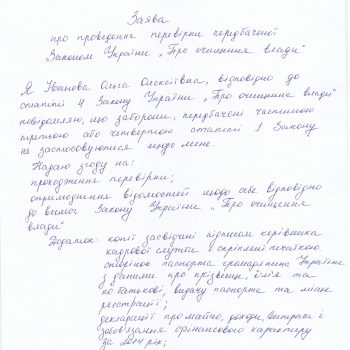 Заява
про проведення перевірки передбаченої
Законом України „Про очищення влади"
Я Іванова Ольга Олексіївна, відповідно до
статті 4 Закону України „Про очищення влади"
повідомляю, що заборони, передбачені частиною
третьою або четвертою статті 1 Закону
не застосовуються щодо мене.
Надаю згоду на:
проходження перевірки;
оприлюднення відомостей щодо себе відповідно
до вимог Закону України „Про очищення
влади"
Додаток: копії засвідчені підписом керівника
кадрової служби і скріплені печаткою,
сторінок паспорта громадянина України
з даними про прізвище, ім'я та
по батькові, видачу паспорта та місце
реєстрації;
декларації про майно, доходи, витрати і
зобов'язання фінансового характеру
за 2014 рік;